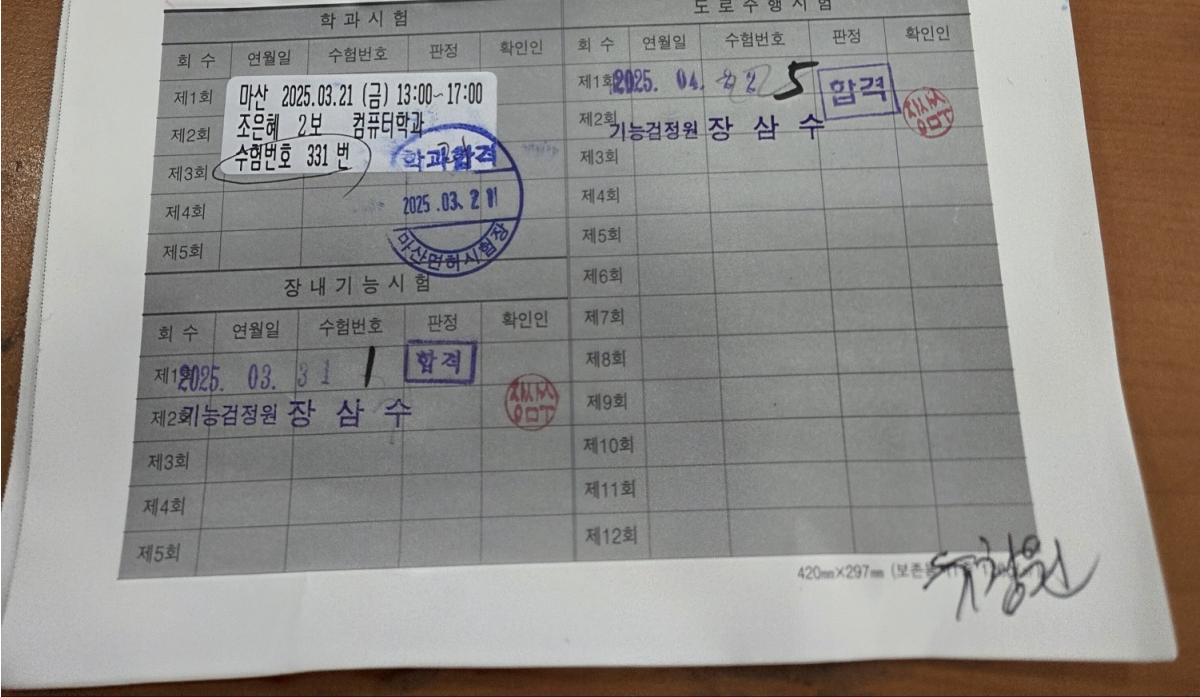 학과시험
회 수 연월일 수험번호 판정 확인인
제1회
마산 2025.03.21 (금) 13:00~17:00
제2회
조은혜 2보 컴퓨터학과
수험번호 331 번
학과합격
제3회
2025.03.21
제4회
마산면허시험장
제5회
장내기능시험
회 수 연월일 수험번호 판정 확인인
제1회 2025. 03. 31 1 합격
제2회 기능검정원 장 삼 수
제3회
제4회
제5회
도로주행시험
회 수 연월일 수험번호 판정 확인인
제1회 2025. 04. 22 5 합격
제2회 기능검정원 장 삼 수
제3회
제4회
제5회
제6회
제7회
제8회
제9회
제10회
제11회
제12회
420㎜×297㎜ (보존용